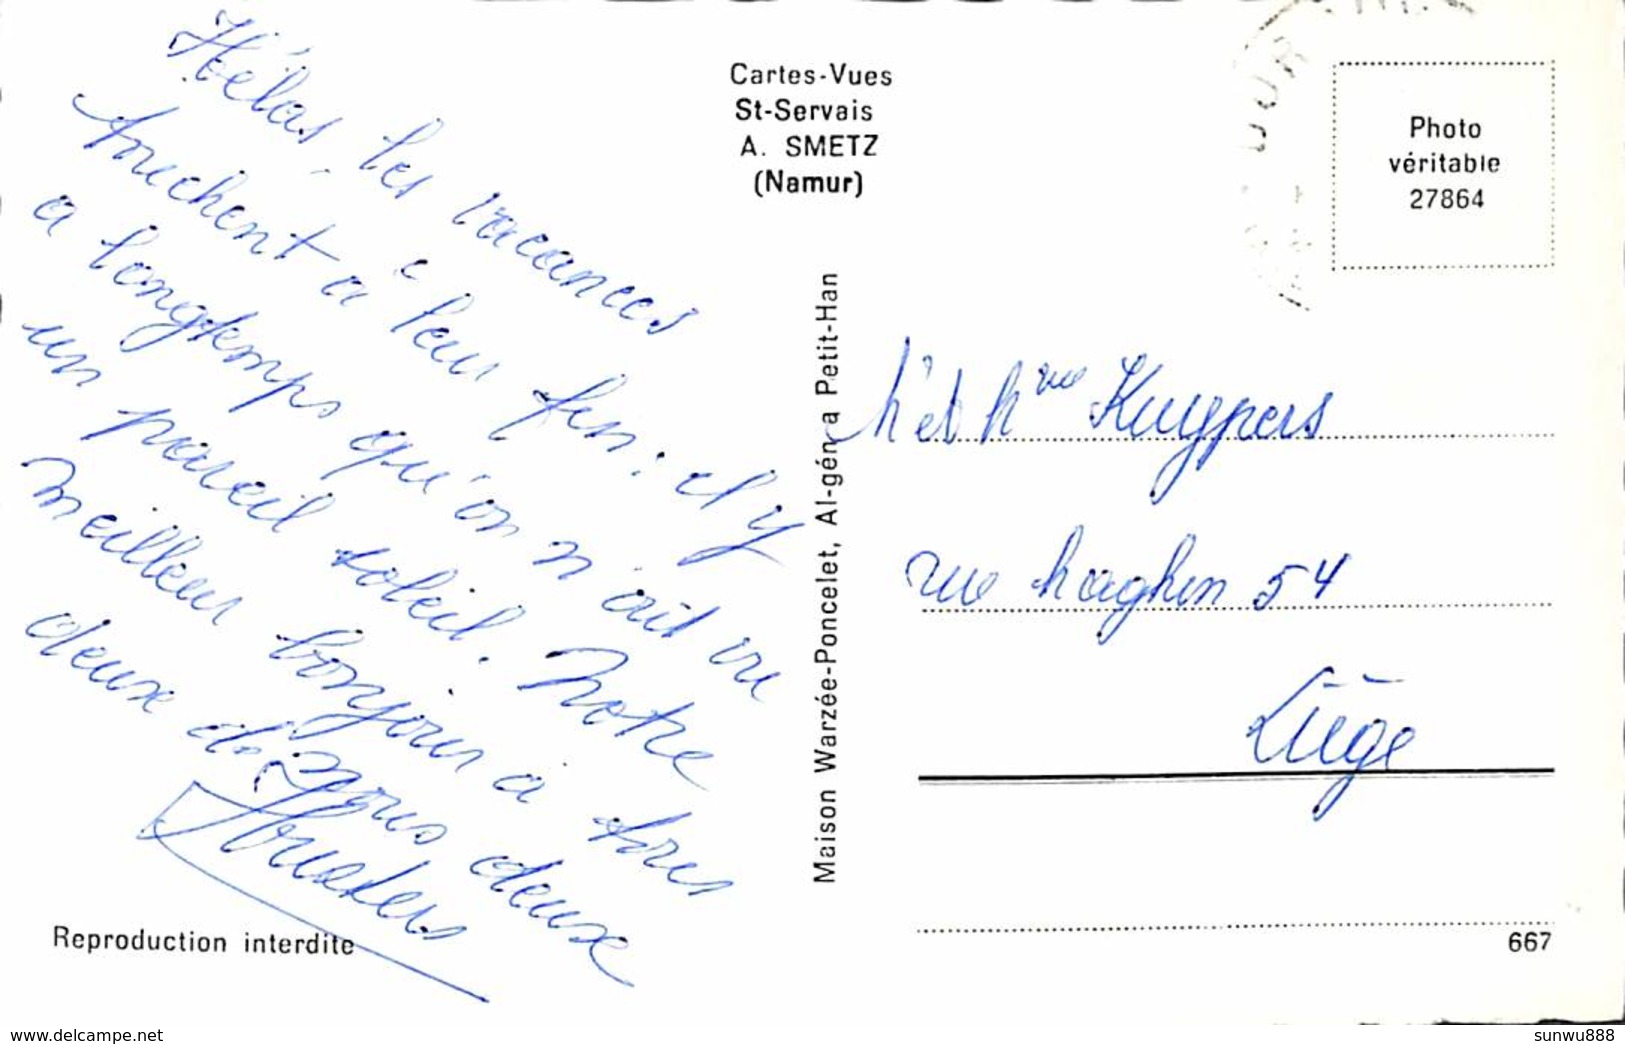 Hélas, les vacances
touchent à leur fin : il y
a longtemps qu'on n'ait vu
un pareil soleil. Notre
meilleur bonjour à tous
deux de nous deux
Reproduction interdite
Cartes-Vues
St-Servais
A. SMETZ
(Namur)
Maison Warzée-Poncelet, Al-gén a Petit-Han
Photo
véritable
27864
M et Mme Kuypers
rue Maghin 54
Liège
667
www.delcampe.net
sunwu888